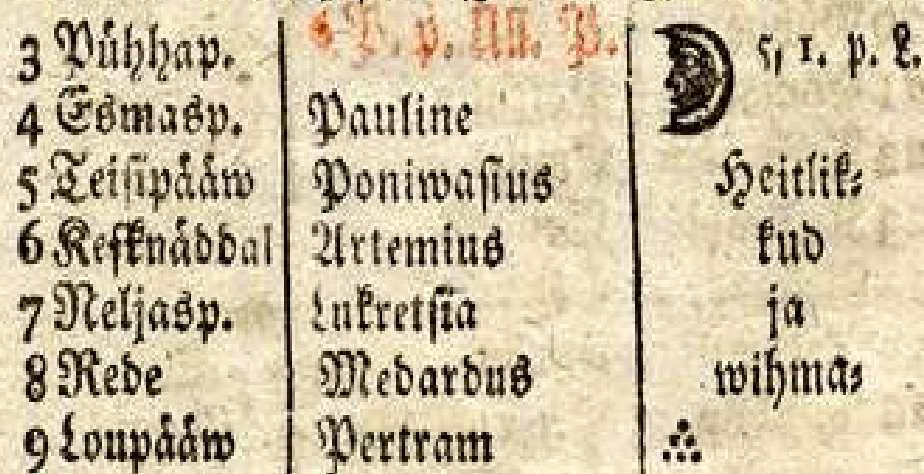 3 Pühhap. 2. p. Nn. P. 5, 1. p. L.
4 Esmasp. Pauline
5 Teisipääw Poniwasius Heitlik⸗
6 Kesknäddal Artemius kud
7 Neljasp. Lukretsia ja
8 Rede Medardus wihma⸗
9 Loupääw Pertram